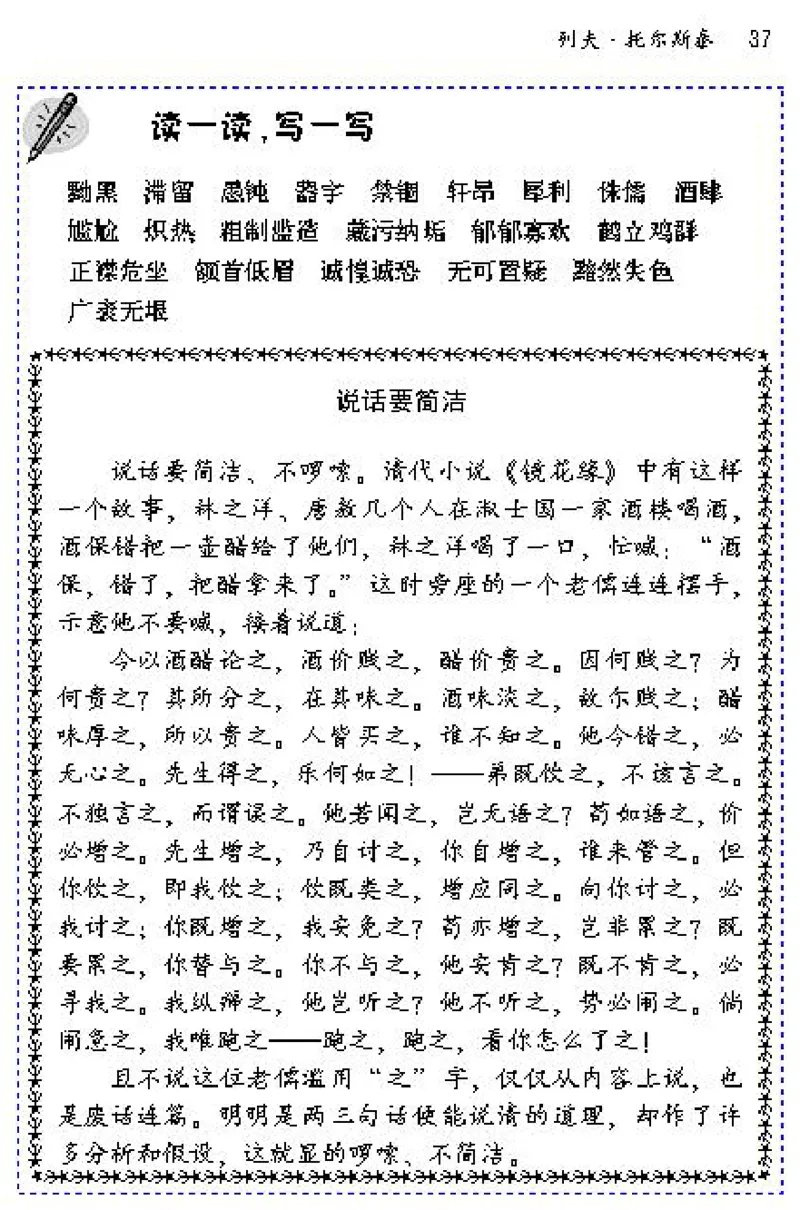 列夫·托尔斯泰 37
读一读,写一写
黝黑 滞留 愚钝 器宇 禁锢 轩昂 犀利 侏儒 酒肆
尴尬 炽热 粗制滥造 藏污纳垢 郁郁寡欢 鹤立鸡群
正襟危坐 颔首低眉 诚惶诚恐 无可置疑 黯然失色
广袤无垠
说话要简洁
说话要简洁、不啰嗦。清代小说《镜花缘》中有这样
一个故事，林之洋、唐敖几个人在淑士国一家酒楼喝酒，
酒保错把一壶醋给了他们，林之洋喝了一口，忙喊：“酒
保，错了，把醋拿来了。”这时旁座的一个老儒连连摆手，
示意他不要喊，接着说道：
今以酒醋论之，酒价贱之，醋价贵之。因何贱之？为
何贵之？其所分之，在其味之。酒味淡之，故尔贱之；醋
味厚之，所以贵之。人皆买之，谁不知之。他今错之，必
无心之。先生得之，乐何如之！——弟既饮之，不该言之。
不独言之，而谓误之。他若闻之，岂无语之？苟如语之，价
必增之。先生增之，乃自讨之，你自增之，谁来管之。但
你饮之，即我饮之；饮既类之，增应同之。向你讨之，必
我讨之；你既增之，我安免之？苟亦增之，岂非累之？既
要累之，你替与之。你不与之，他安肯之？既不肯之，必
寻我之。我纵辩之，他岂听之？他不听之，势必闹之。倘
闹急之，我唯跑之——跑之，跑之，看你怎么了之！
且不说这位老儒滥用“之”字，仅仅从内容上说，也
是废话连篇。明明是两三句话便能说清的道理，却作了许
多分析和假设，这就显的啰嗦、不简洁。